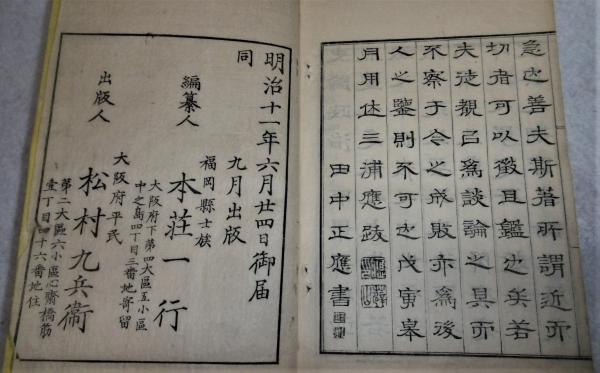 急也善夫斯著所謂近而
切者可以徵且鑑也矣若
夫徒視㠯爲談論之具而
不察于今之成敗亦爲後
人之鑒則不可也戊寅皋
月用休三浦應跋
田中正應書
明治十一年六月廿四日御届
同 九月出版
福岡縣士族
編纂人 本荘一行
大阪府下第四大區五小區
中之島四丁目三番地寄留
大阪府平民
出版人 松村九兵衞
第二大區六小區心齋橋筋
壹丁目四十六番地住